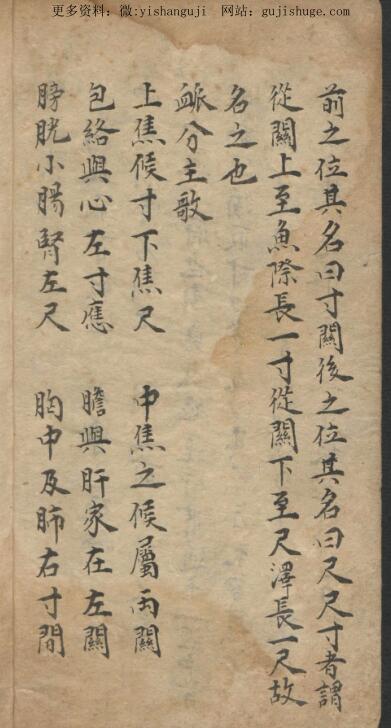 更多资料：微:yishanguji　网站：gujishuge.com
前之位其名曰寸關後之位其名曰尺尺寸者謂
從關上至魚際長一寸從關下至尺澤長一尺故
名之也
脈分主歌
上焦候寸下焦尺　中焦之候屬兩關
包絡與心左寸應　膽與肝家在左關
膀胱小腸腎左尺　胸中及肺右寸間